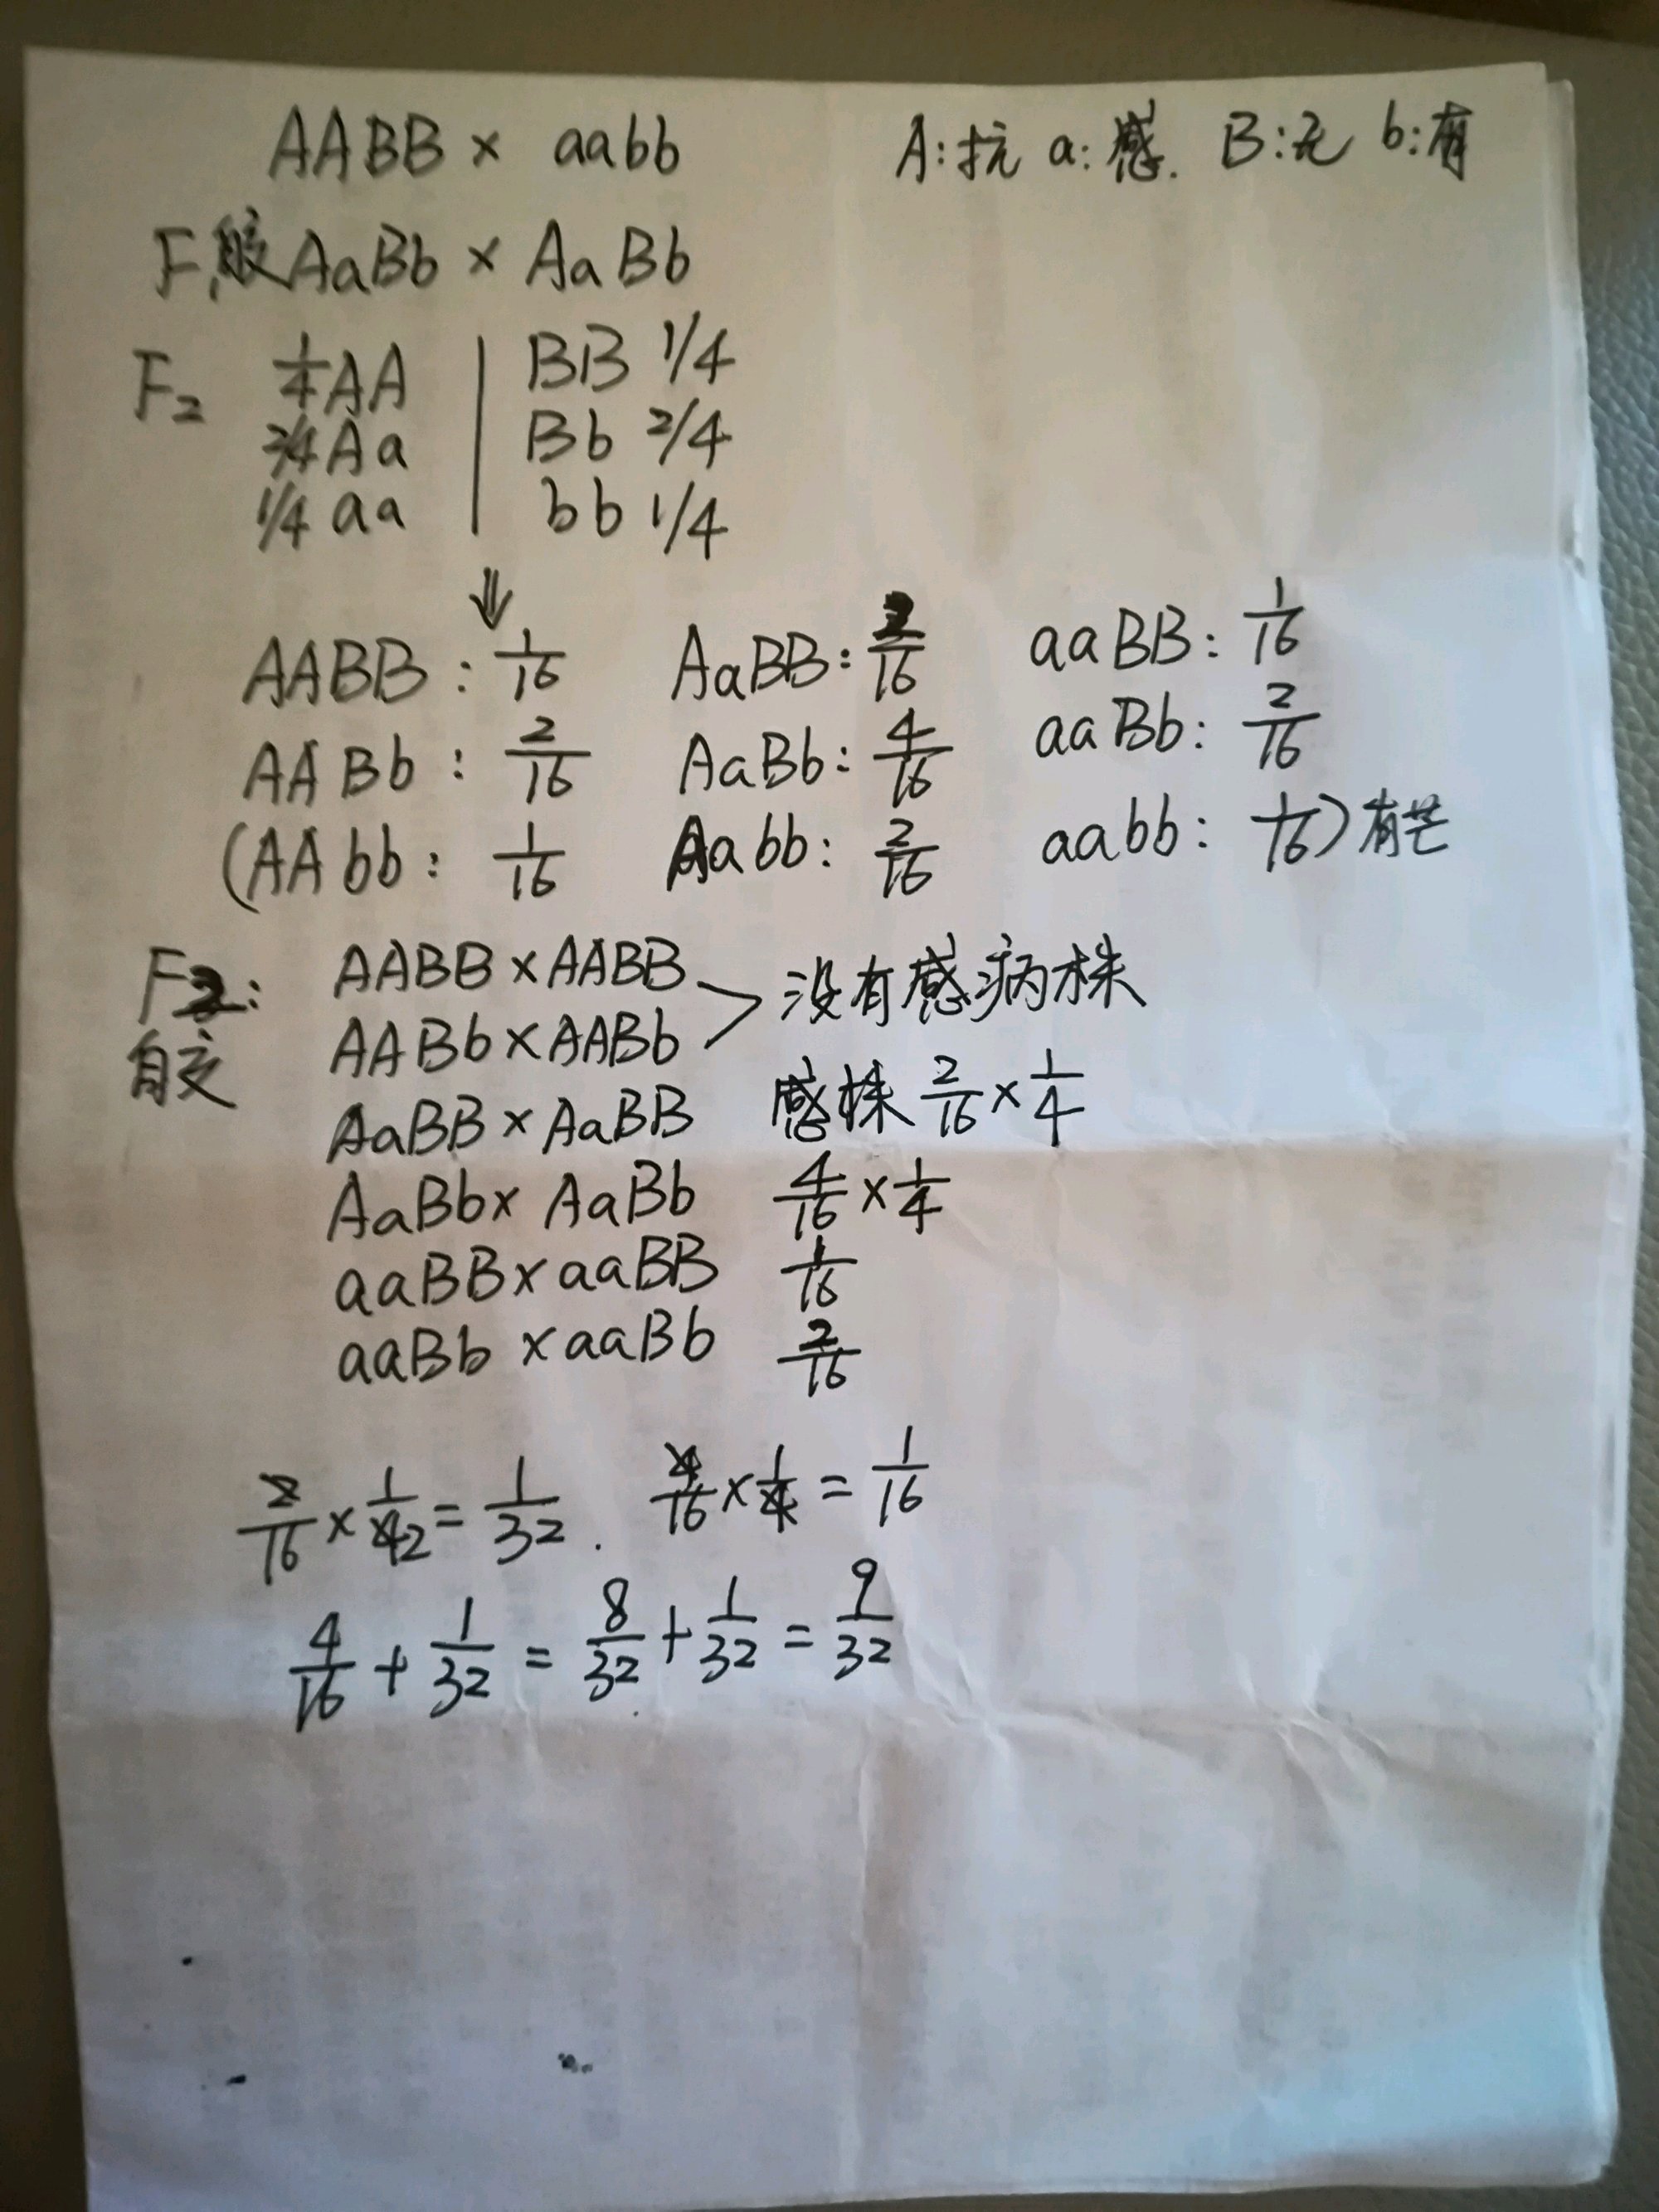 AABB × aabb A:抗 a:感. B:无 b:有
F₁自交 AaBb × AaBb
F₂ 1/4 AA | BB 1/4
2/4 Aa | Bb 2/4
1/4 aa | bb 1/4
⇓
AABB : 1/16 AaBB: 2/16 aaBB: 1/16
AABb : 2/16 AaBb: 4/16 aaBb: 2/16
(AAbb : 1/16 Aabb: 2/16 aabb: 1/16) 有芒
F2: AABB × AABB
自交 AABb × AABb > 没有感病株
AaBB × AaBB 感株 2/16 × 1/4
AaBb × AaBb 4/16 × 1/4
aaBB × aaBB 1/16
aaBb × aaBb 2/16
2/16 × 1/42 = 1/32 . 4/16 × 1/4 = 1/16
4/16 + 1/32 = 8/32 + 1/32 = 9/32